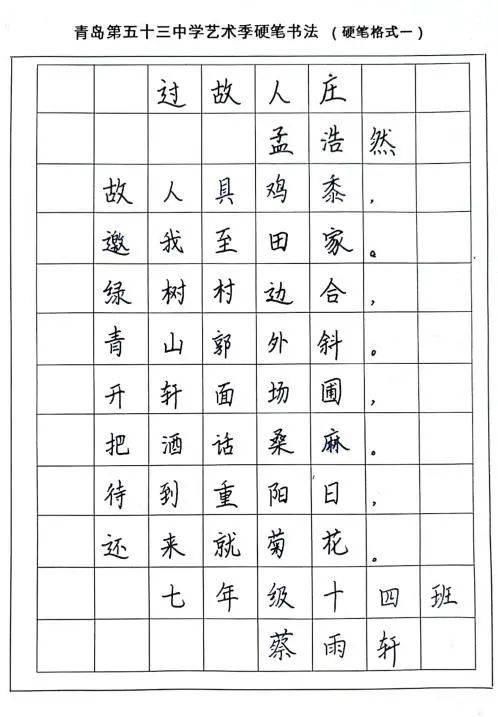 青岛第五十三中学艺术季硬笔书法 （硬笔格式一）
过故人庄
孟浩然
故人具鸡黍，
邀我至田家。
绿树村边合，
青山郭外斜。
开轩面场圃，
把酒话桑麻。
待到重阳日，
还来就菊花。
七年级十四班
蔡雨轩